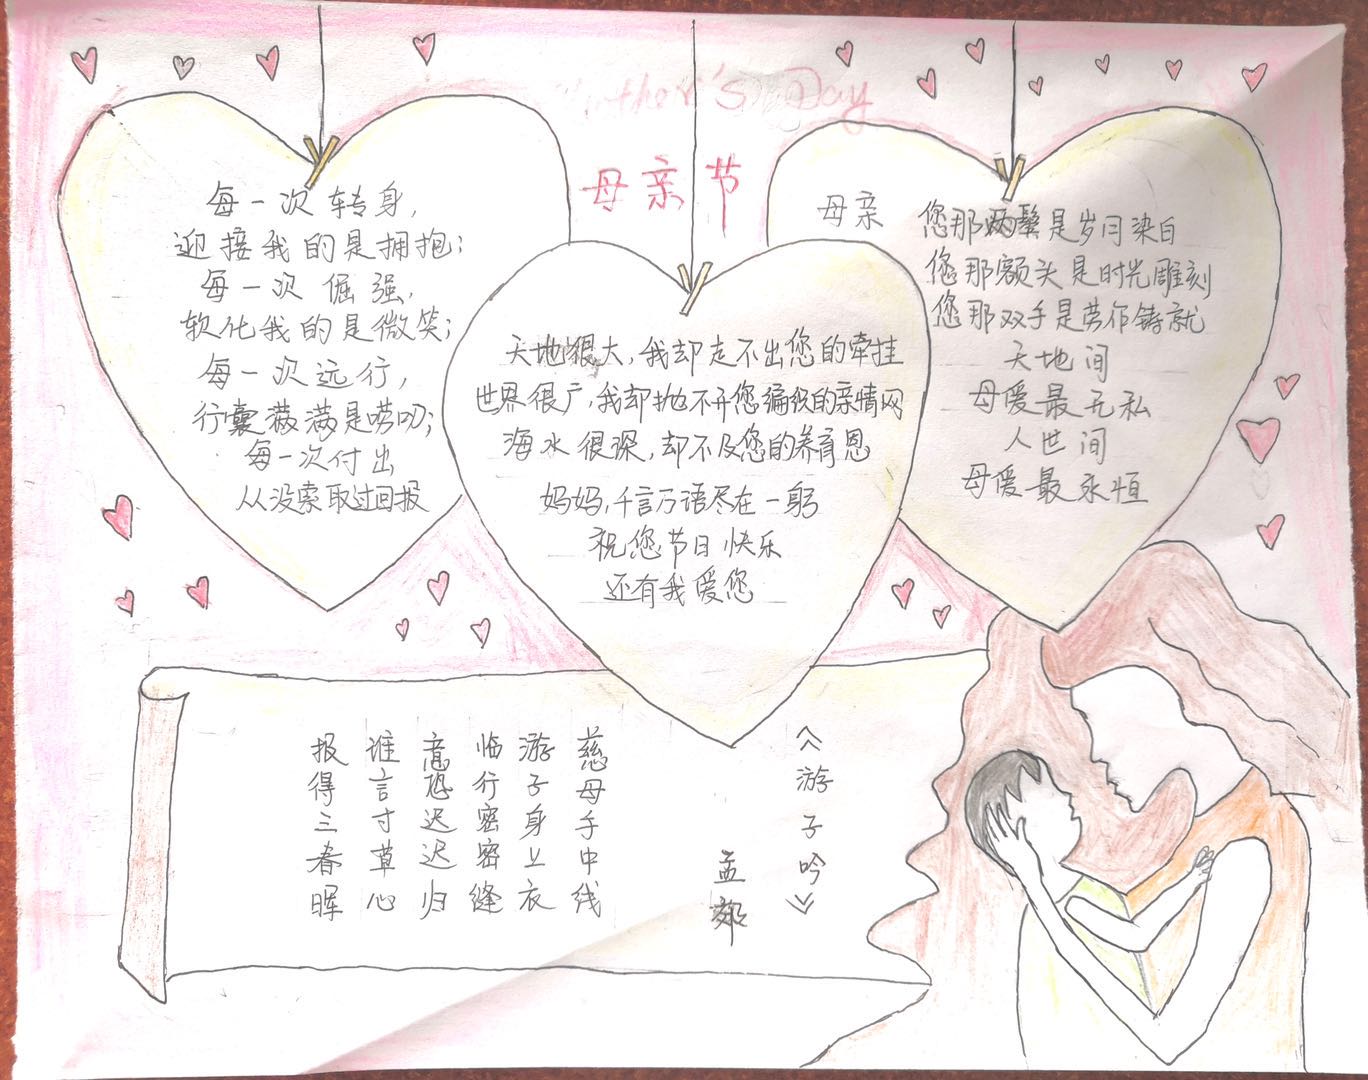 Mother's Day
母亲节
每一次转身，
迎接我的是拥抱；
每一次倔强，
软化我的是微笑；
每一次远行，
行囊满满是唠叨；
每一次付出
从没索取过回报
天地很大，我却走不出您的牵挂
世界很广，我却抛不开您编织的亲情网
海水很深，却不及您的养育恩
妈妈，千言万语尽在一躬
祝您节日快乐
还有我爱您
母亲 您那两鬓是岁月染白
您那额头是时光雕刻
您那双手是劳作铸就
天地间
母爱最无私
人世间
母爱最永恒
《游子吟》
孟郊
慈母手中线
游子身上衣
临行密密缝
意恐迟迟归
谁言寸草心
报得三春晖